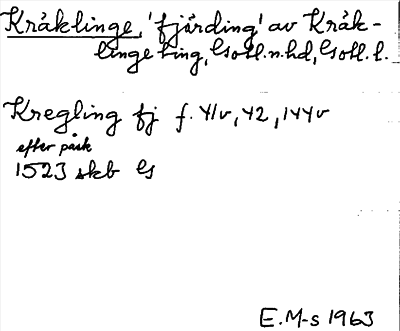 Kråklinge, 'fjärding' av Kråk-
linge ting, Gotl.n.hd, Gotl.l.
Kregling fj f. 41v, 42, 144v
efter påsk
1523 skb G
E.M-s 1963